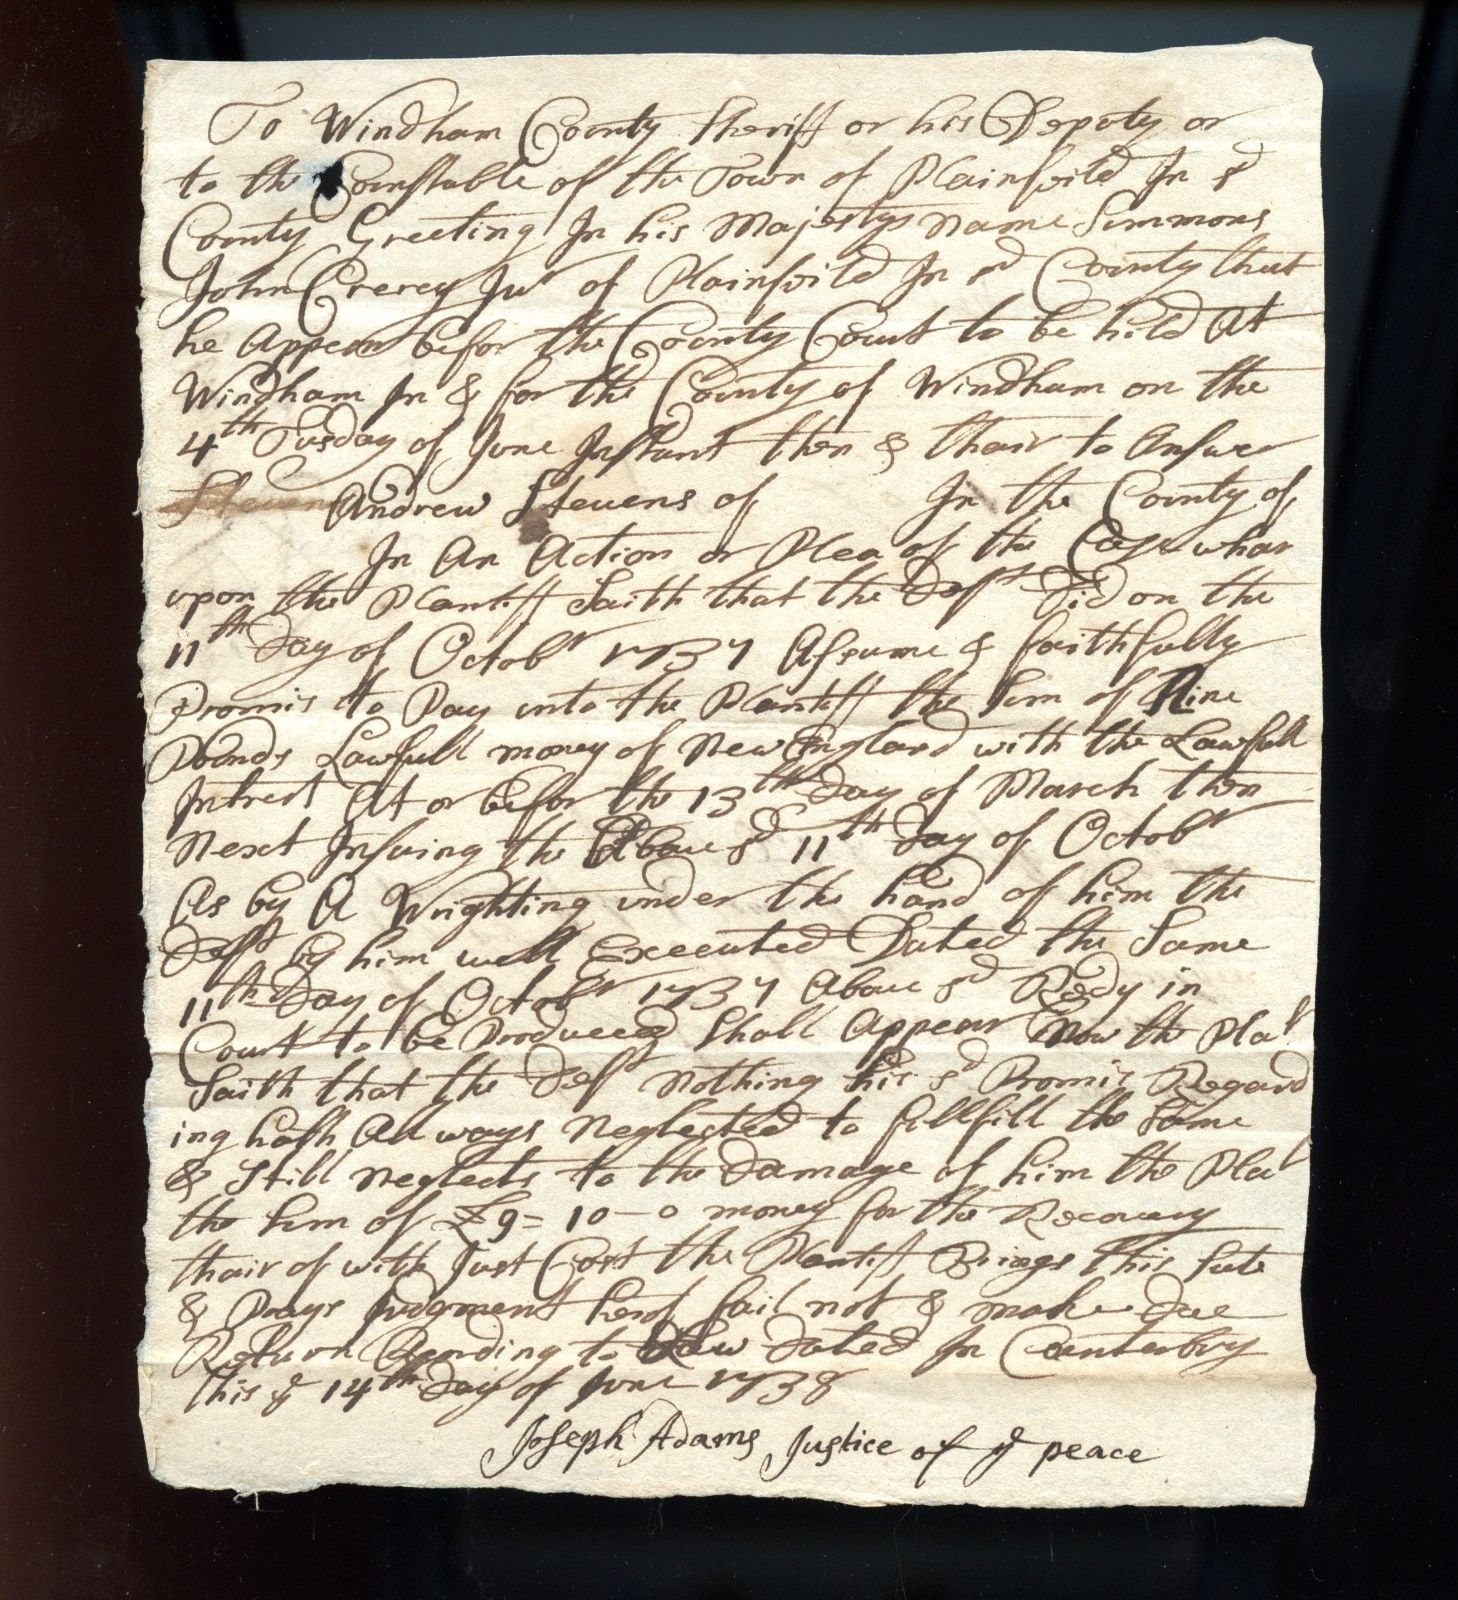 To Windham County Sheriff or his Deputy or
to the Counstable of the Town of Plainfeild In sd
County Greeting In his Majestys Name Summons
John Crerey Junr of Plainfeild In sd County that
he Appear befor the County Court to be held At
Windham In & for the County of Windham on the
4th Tusday of June Instant then & thair to Answer
Steven Andrew Stevens of In the County of
In An Action or Plea of the Case whar
upon the Plantiff Saith that the Deft Did on the
11th Day of Octobr 1737 Assume & faithfully
Promis to Pay unto the Plantiff the Sum of Nine
Pounds Lawfull money of New England with the Lawfull
Intrest At or befor the 13th Day of March then
Next Insuing the Above sd 11th Day of Octobr
As by A Wrighting under the hand of him the
Deft by him well Executed Dated the Same
11th Day of Octobr 1737 Above sd Redy in
Court to be Produced Shall Appear Now the Plat
Saith that the Deft Nothing his sd Promis Regard
ing hath All ways Neglected to fullfill the Same
& Still Neglects to the Damage of him the Plat
the Sum of £9=10-0 money for the Recovery
thair of with Just Cost the Plantiff Brings this Sute
& Prays Judgment herof fail not & make Due
Return Acording to Law Dated In Canterbry
this ye 14th Day of June 1738
Joseph Adams Justice of ye peace